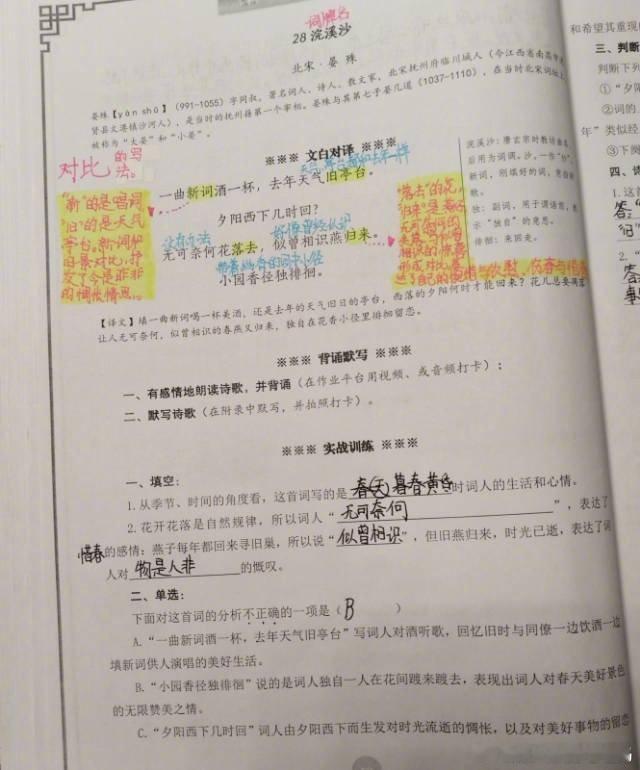 词牌名
28 浣溪沙
北宋·晏 殊
晏殊【yàn shū】(991~1055)字同叔,著名词人、诗人、散文家,北宋抚州府临川城人(今江西省南昌市进
贤县文港镇沙河人),是当时的抚州籍第一个宰相。晏殊与其第七子晏几道(1037~1110),在当时北宋词坛上
被称为“大晏”和“小晏”。
对比的写法。
※※※ 文白对译 ※※※
一曲新词酒一杯,去年天气旧亭台。
夕阳西下几时回?
没有办法
好像曾经认识
无可奈何花落去,似曾相识燕归来。
小园香径独徘徊。
“新”的是唱词
“旧”的是天气
亭台,新词和
旧景对比,抒
发了今是昨非
的惆怅情思。
“落去”的花,
“归来”是燕
浣溪沙:唐玄宗时教坊曲名,
后用为词调。沙,一作“纱”。
新词,刚填好的词,意指新
歌。
独:副词,用于谓语前,表
示“独自”的意思。
徘徊:来回走。
【译文】填一曲新词喝一杯美酒,还是去年的天气旧日的亭台,西落的夕阳何时才能回来?花儿总要凋落
让人无可奈何,似曾相识的春燕又归来,独自在花香小径里徘徊留恋。
※※※ 背诵默写 ※※※
一、有感情地朗读诗歌,并背诵(在作业平台用视频、或音频打卡);
二、默写诗歌(在附录中默写,并拍照打卡)。
※※※ 实战训练 ※※※
一、填空:
1.从季节、时间的角度看,这首词写的是暮春黄昏时词人的生活和心情。
2.花开花落是自然规律,所以词人“无可奈何”,表达了
惜春的感情;燕子每年都回来寻旧巢,所以说“似曾相识”,但旧燕归来,时光已逝,表达了词
人对物是人非的慨叹。
二、单选:
下面对这首词的分析不正确的一项是(B)
A.“一曲新词酒一杯,去年天气旧亭台”写词人对酒听歌,回忆旧时与同僚一边饮酒一边
填新词供人演唱的美好生活。
B.“小园香径独徘徊”说的是词人独自一人在花间踱来踱去,表现出词人对春天美好景色
的无限赞美之情。
C.“夕阳西下几时回”词人由夕阳西下而生发对时光流逝的惆怅,以及对美好事物的留恋
和希望其重现
三、判断
判断下列
①“夕阳
②词的
年”类似经
③下阕
四、
1.这首
答:“
旧”
2.“
答: